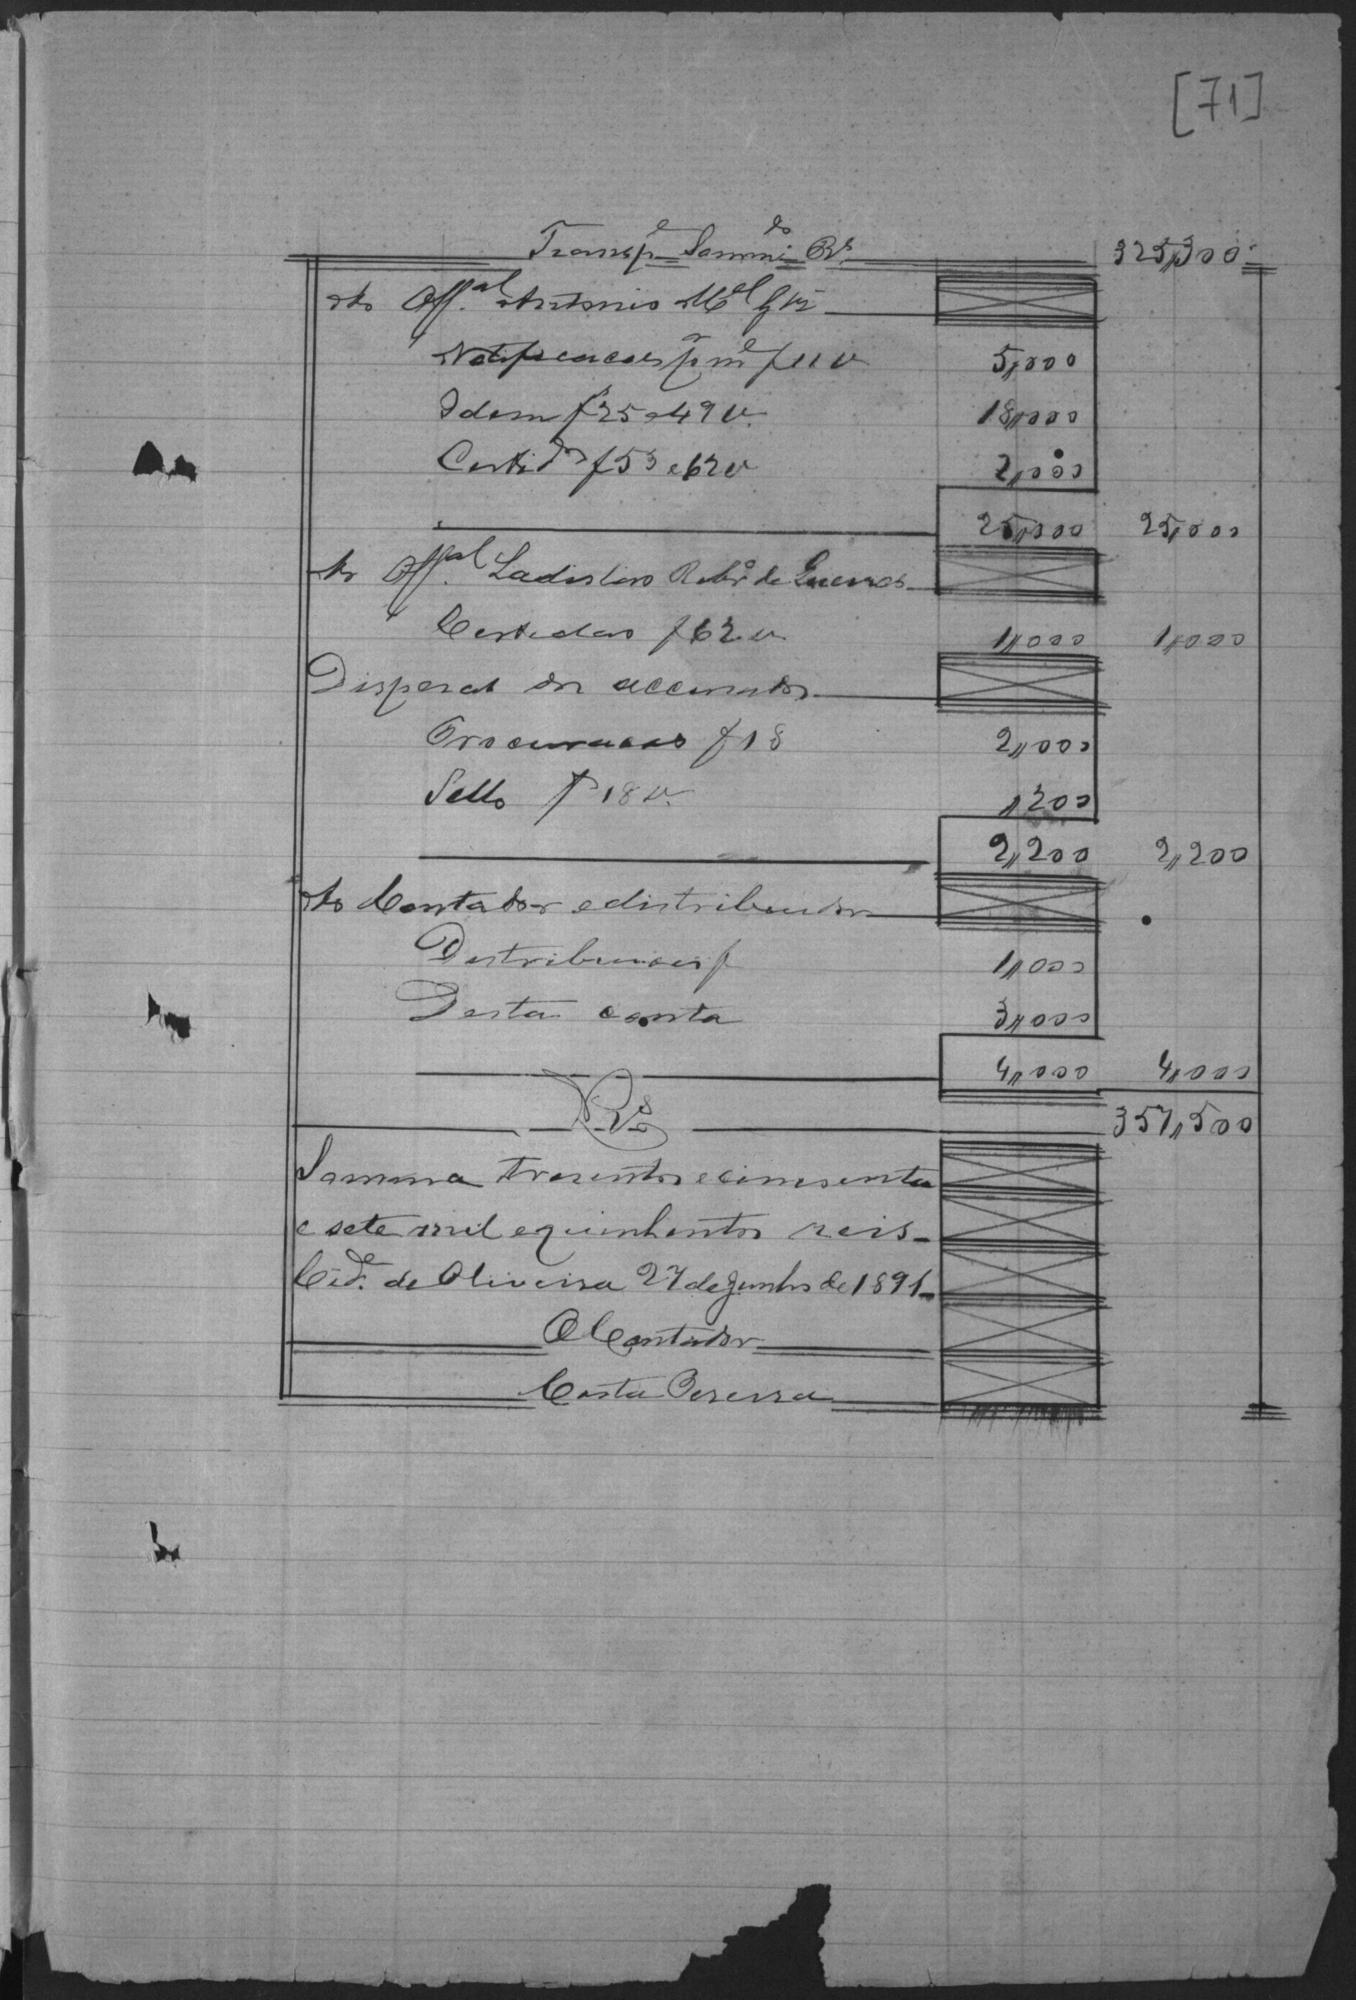 [71]
Transp.e Somma Rs 325,300
Ao Off.al Antonio M.el
Notificacoes f 11 v 5,000
Idem f 25 e 49 v. 18,000
Certid f 53 e 62 v 2,000
25,000 25,000
Ao Off.al Ladislao Rib.ro de Guerra
Certidao f 62 v 1,000 1,000
Dispeza dos accusados
Procuracao f 18 2,000
Sello f 18 v. ,200
2,200 2,200
Ao Contador e distribuidor
Destribuicao f 1,000
Desta conta 3,000
4,000 4,000
Rs 357,500
Somma tresentos e cincoenta
e sete mil e quinhentos reis
Cid.e de Oliveira 27 de Junho de 1891
O Contador
Costa Pereira